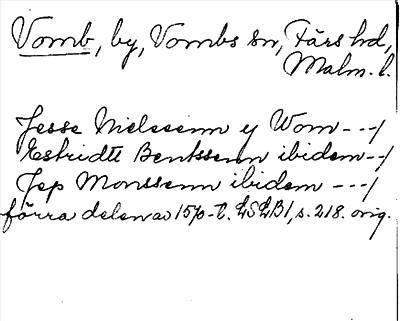 Vomb, by, Vombs sn, Färs hd,
Malm. l.
Jesse Nielssenn y Wom - - -/
Estridtt Bentssenn ibidem - -/
Jep Monssenn ibidem - - -/
förra delen av 1570-t. LSLB1, s. 218. orig.